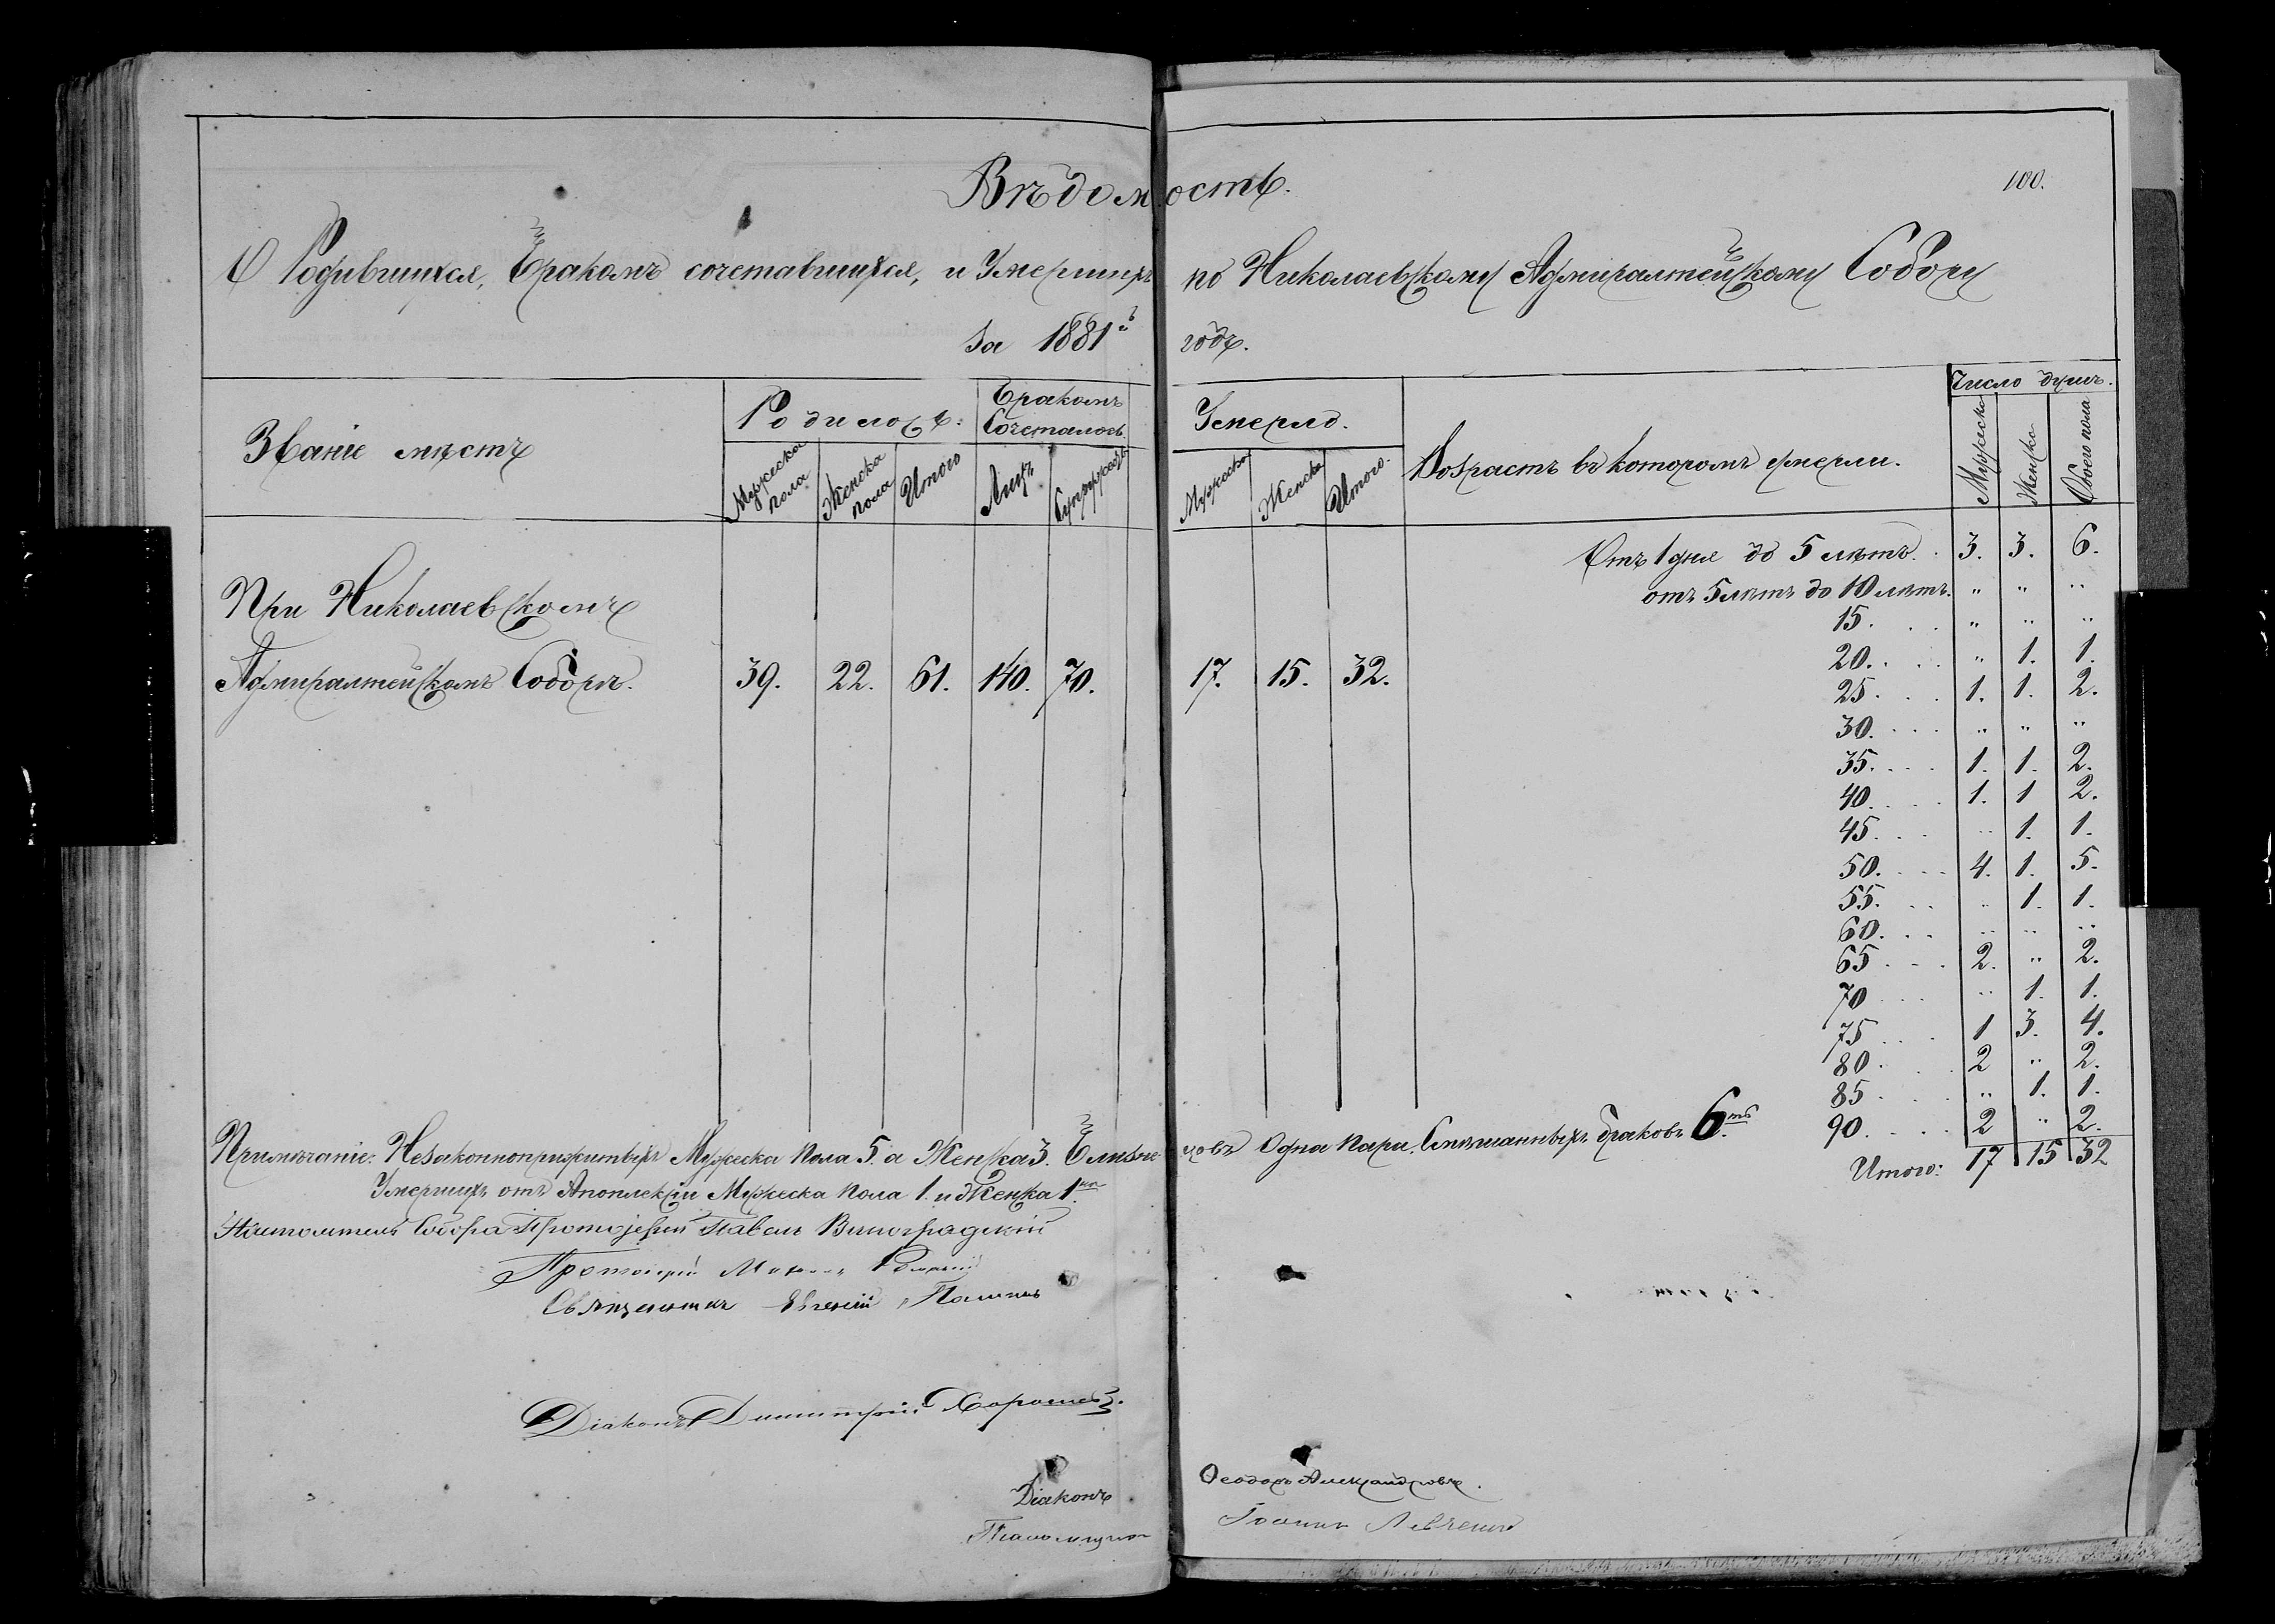 Вѣдомость.
100.
О Родившихся, Бракомъ сочетавшихся, и Умершихъ по Николаевскому Адмиралтейскому Собору
за 1881й годъ.
Званіе мѣстъ
Родилось:
Бракомъ Сочеталось.
Умерло.
Возрастъ въ которомъ умерли.
Число душъ.
Мужеска пола
Женска пола
Итого
Лицъ
Супружествъ
Мужеска
Женска
Итого.
Мужеска
Женска
Обоего пола
При Николаевскомъ
Адмиралтейскомъ Соборѣ. 39. 22. 61. 140. 70. 17. 15. 32.
Отъ 1 дня до 5 лѣтъ. 3. 3. 6.
отъ 5 лѣтъ до 10 лѣтъ. " " "
15. " " "
20. " 1. 1.
25. 1. 1. 2.
30. " " "
35. 1. 1. 2.
40. 1. 1 2.
45. " 1. 1.
50. 4. 1. 5.
55. " 1. 1.
60. " " "
65 2. " 2.
70 " 1. 1.
75 1 3. 4.
80. 2 " 2.
85. " 1. 1.
90. 2 " 2.
Итого: 17 15 32
Примѣчаніе: Незаконноприжитыхъ Мужеска пола 5. а Женска 3. Близнецовъ Одна пара. Смѣшанныхъ браковъ 6ть
Умершихъ отъ Апоплексіи Мужеска пола 1. и Женска 1на
Настоятель Собора Протоіерей Павелъ Виноградскій
Протоіерей
Священникъ Евгеній
Діаконъ Димитрій
Діаконъ Ѳеодоръ Александровъ.
Псаломщикъ Іоаннъ Левченко